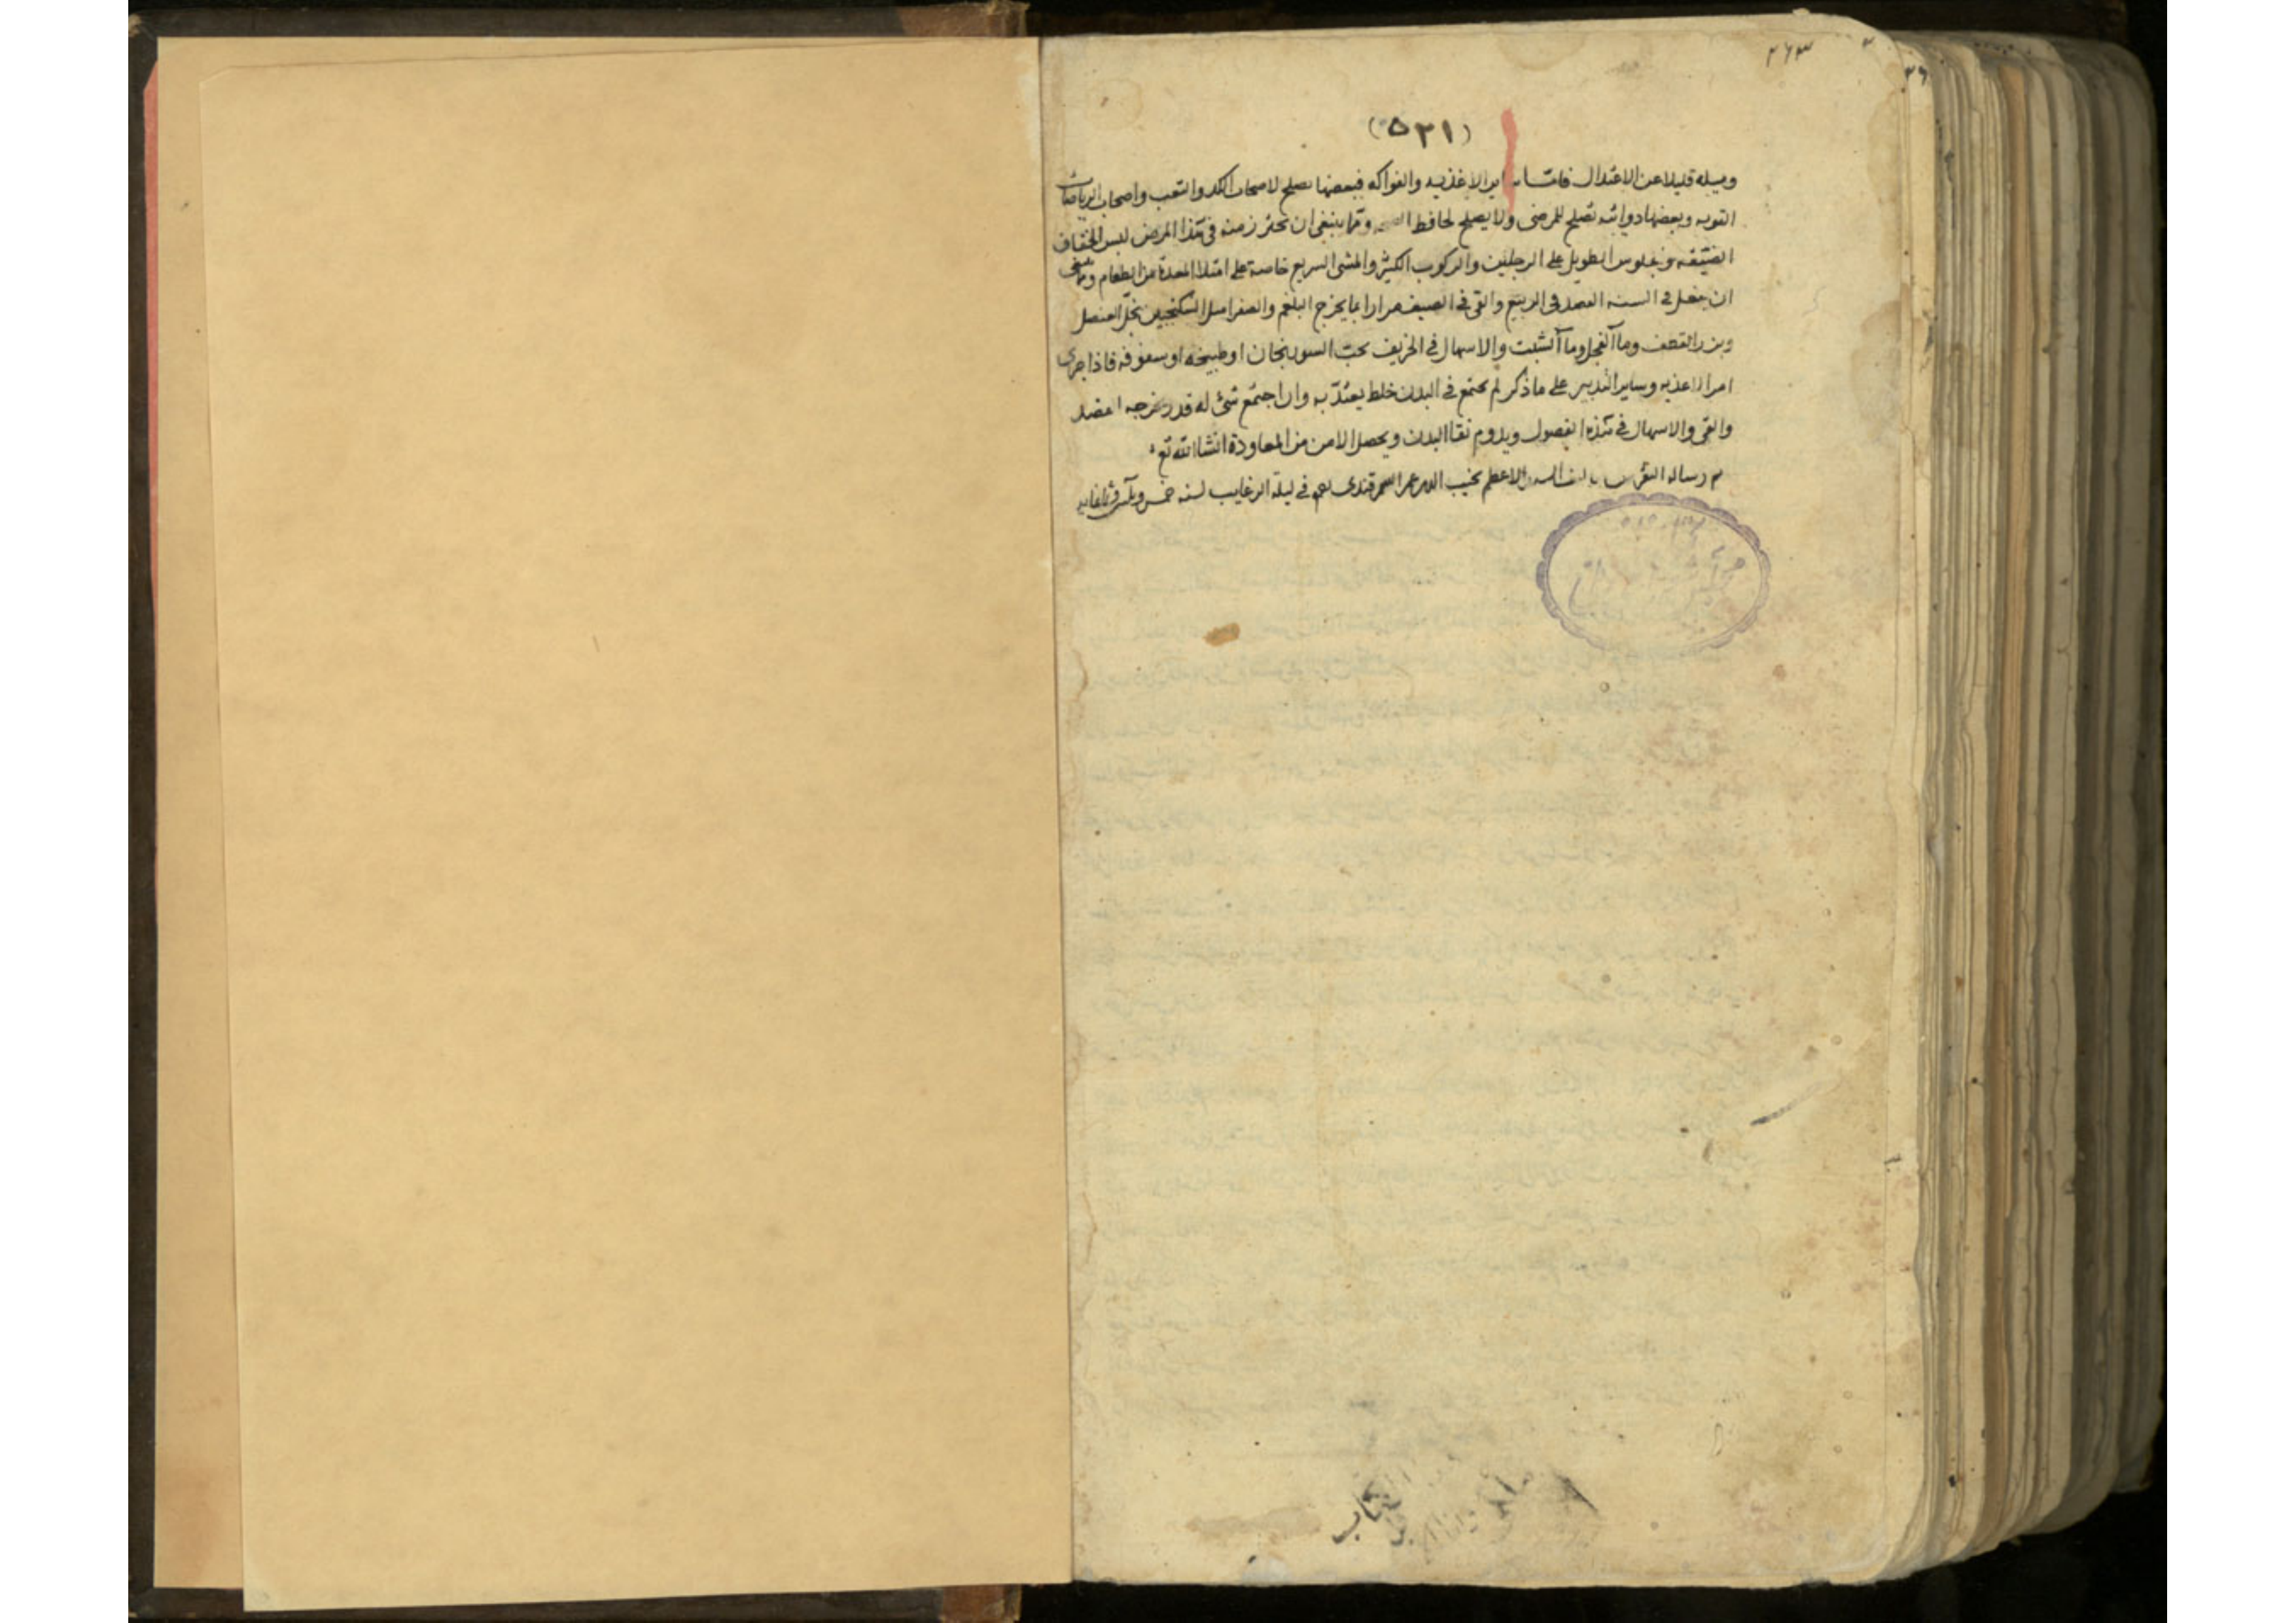 ۲۶۳
(۵۲۱)
وميله قليلا عن الاعتدال فامّا ساير الاغذيه والفواكه فبعضها يصلح لاصحاب الكد والتعب واصحاب الرياضات
القويه وبعضها دوائيه تصلح للمرضى ولا يصلح لحافظ الصحه وممّا ينبغى ان يحترز منه فى هذا المرض لبس الخفاف
الضيقه والجلوس الطويل على الرجلين والركوب الكثير والمشى السريع خاصة على امتلا المعدة من الطعام
ان يفعل فى السنه الفصد فى الربيع والقى فى الصيف مرارا بما يخرج البلغم والصفرا مثل السكنجبين بخل العنصل
وبزر القطف وماآ الفجل وماآ الشبت والاسهال فى الخريف بحب السورنجان او طبيخه او سفوفه فاذا جرى
امر الاغذيه وساير التدبير على ما ذكر لم يجتمع فى البدن خلط يعتدّ به وان اجتمع شئ له قدر خرجه الفصد
والقى والاسهال فى هذه الفصول ويدوم نقا البدن ويحصل الامن من المعاودة انشاالله تع
رساله النقرس الاعظم نجيب الدين عمر السمرقندى فى ليلة الرغايب لسنه خمس
الكتاب